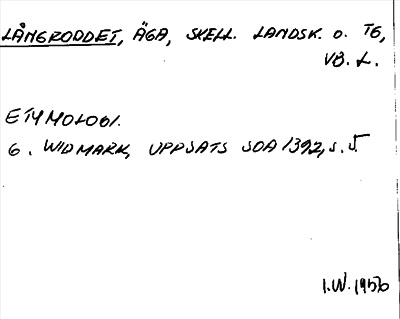 LÅNGRODDET, ÄGA, SKELL. LANDSK. o. TG,
VB. L.
ETYMOLOGI.
G. WIDMARK, UPPSATS SOA 1392, s. 5
I.W. 1956